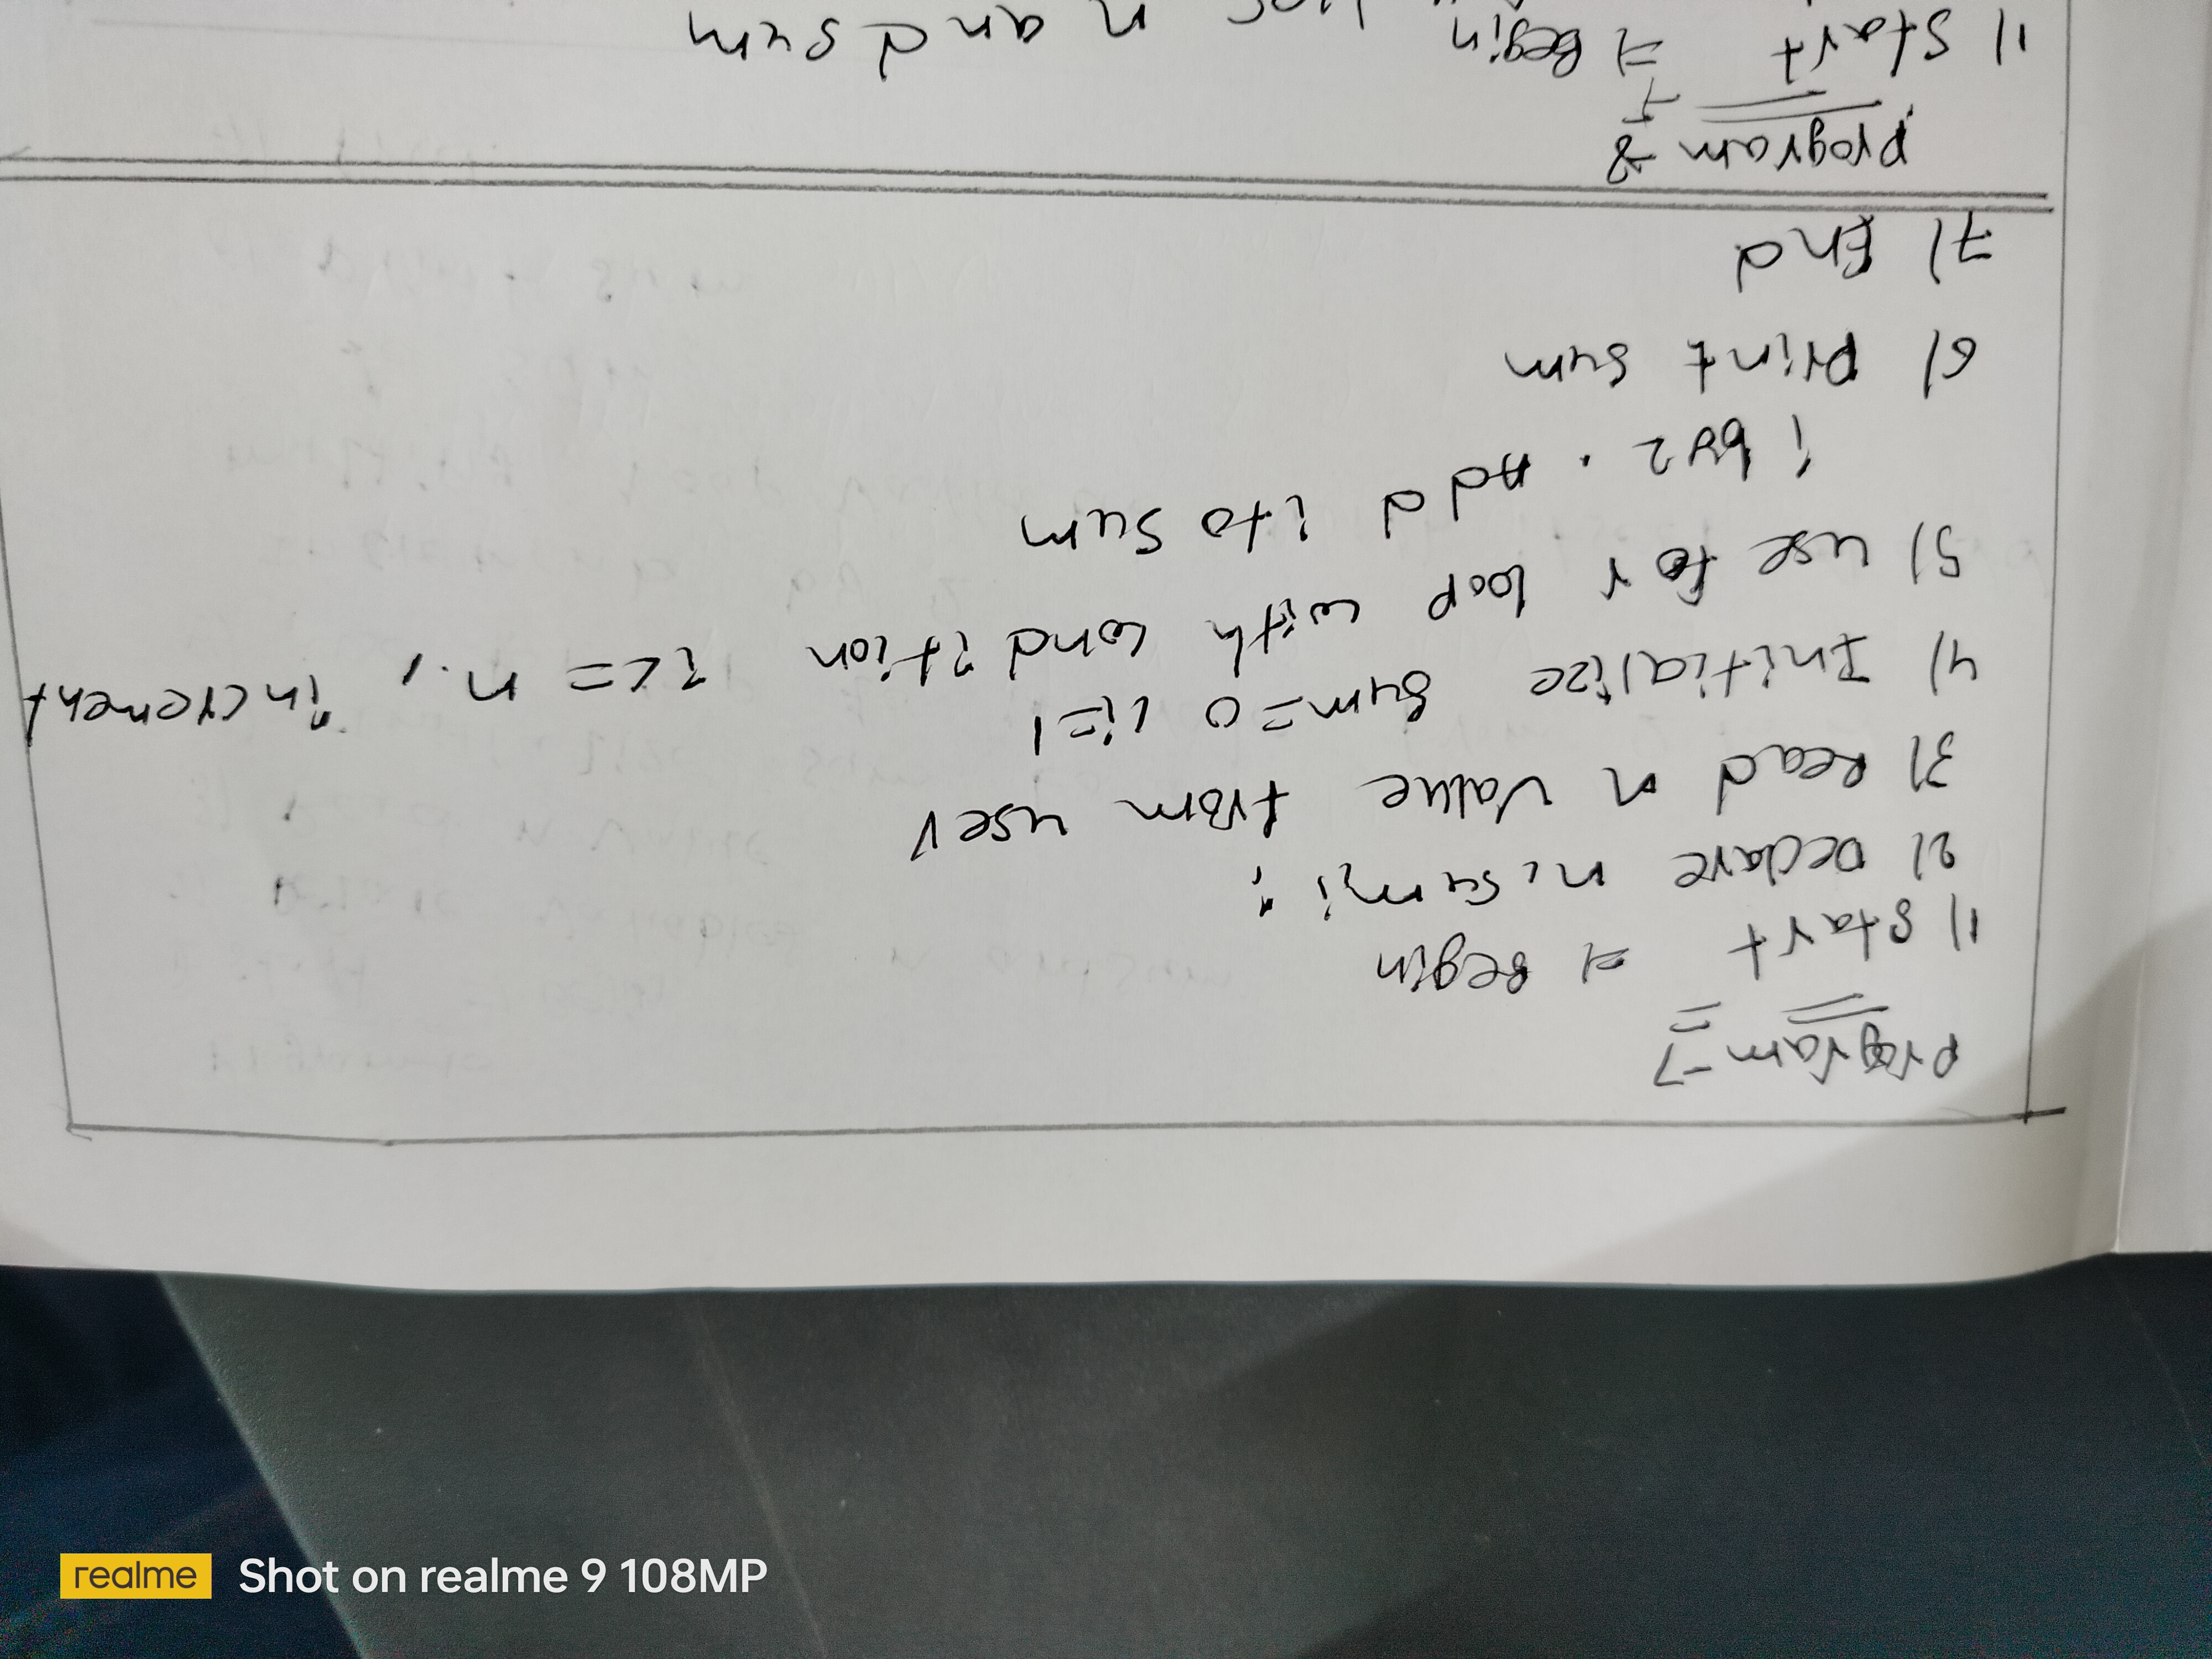 Program-7
1) Start = Begin
2) Declare n, sum, i ;
3) Read n value from user
4) Initialize sum=0 i=1
5) use for loop with condition i<=n, increment
i by 2. Add i to sum
6) print sum
7) End
program-8
1) Start = Begin
n and sum
realme Shot on realme 9 108MP